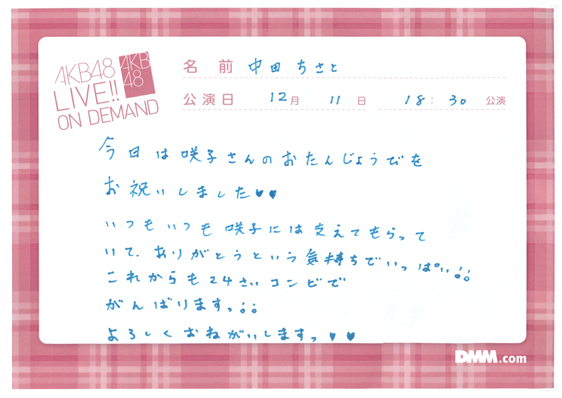 AKB48
LIVE!!
ON DEMAND
AKB
48
名前 中田ちさと
公演日 12月 11日 18:30公演
今日は咲子さんのおたんじょうびを
お祝いしました♥♥
いつもいつも咲子には支えてもらって
いて、ありがとうという気持ちでいっぱい!!
これからも24さいコンビで
がんばりますっ!!
よろしくおねがいしますっ♥♥
DMM.com